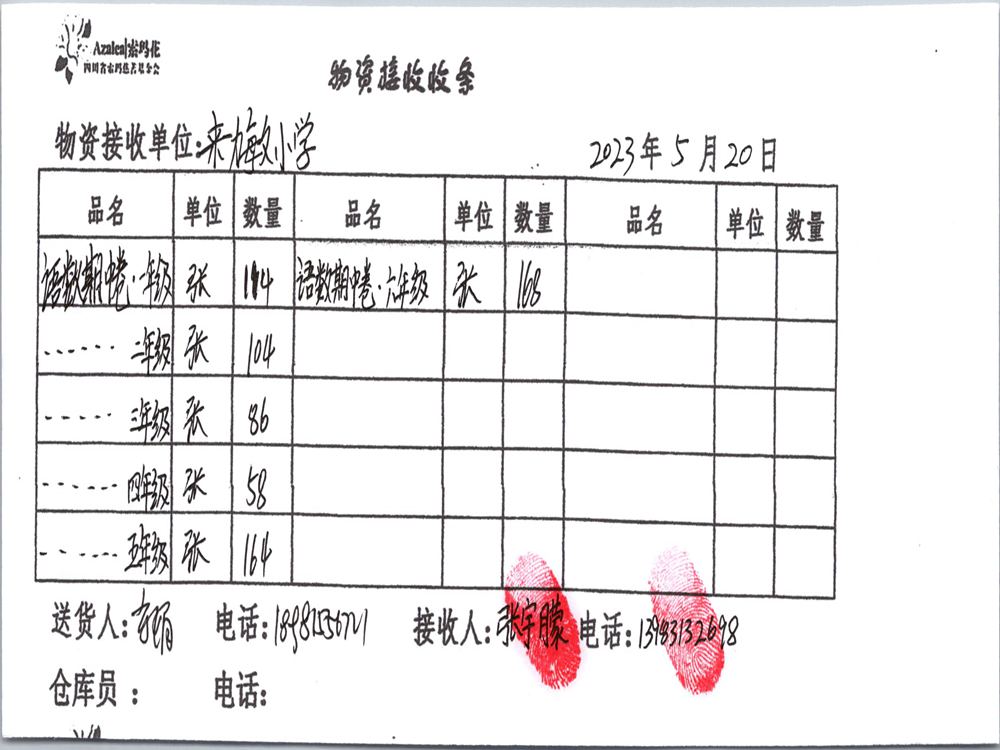 Azalea|索玛花
四川省索玛慈善基金会
物资接收收条
物资接收单位:来敏小学 2023年5月20日
品名 单位 数量 品名 单位 数量 品名 单位 数量
语数期中卷·一年级 张 114 语数期中卷·六年级 张 168
······ 二年级 张 104
····· 三年级 张 86
······ 四年级 张 58
······ 五年级 张 164
送货人: 电话: 接收人:张宇朦 电话:
仓库员: 电话: